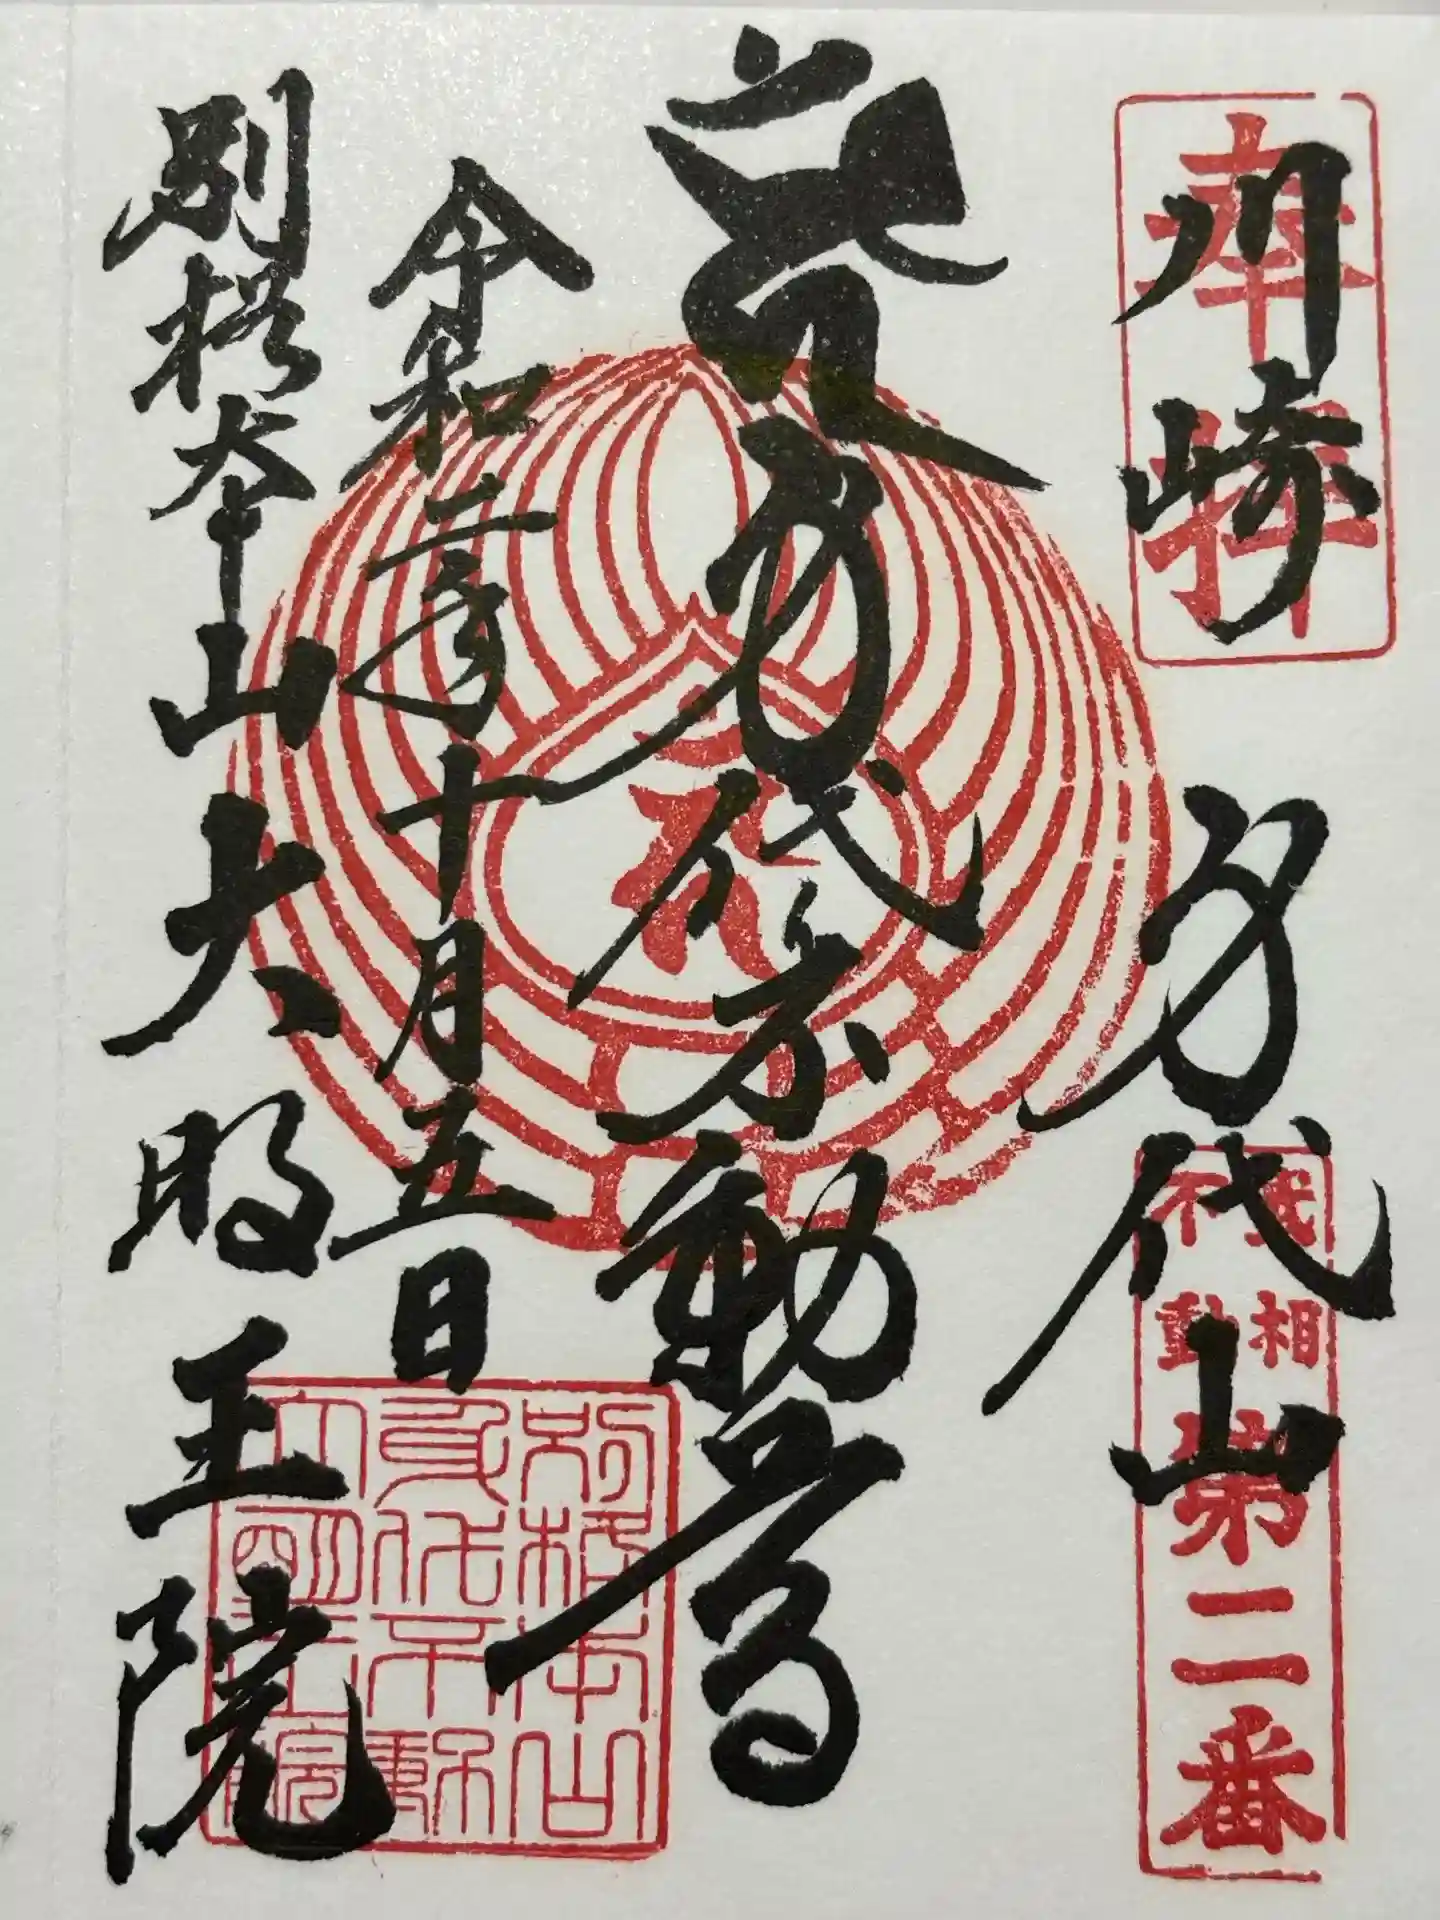 奉拝
川崎
身代山
武相
不動
第二番
身代不動尊
令和二年十月五日
別格本山大明王院
別格本山
身代不動
大明王院